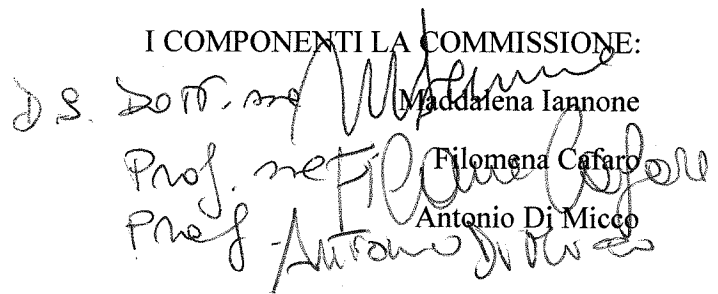 I COMPONENTI LA COMMISSIONE:
DS. DOTT.ssa Maddalena Iannone
Prof. ssa Filomena Cafaro Filomena Cafaro
Prof. Antonio Di Micco Antonio Di Micco